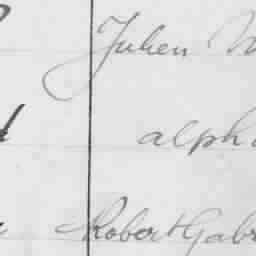 Julien
alph
Robert Gabr